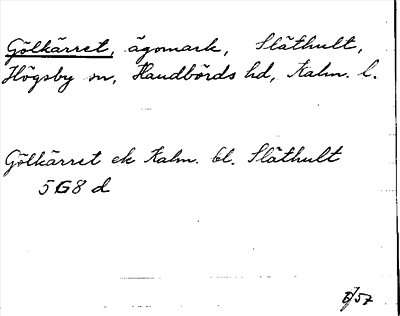 Gölkärret, ägomark, Släthult,
Högsby sn, Handbörds hd, Kalm. l.
Gölkärret ek Kalm. bl. Släthult
5G8d